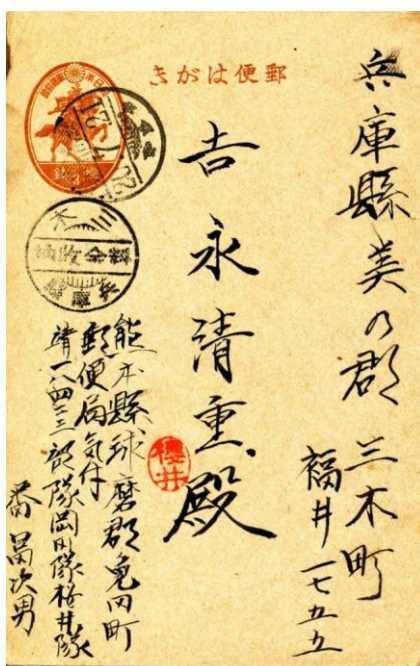 郵便はがき
兵庫縣美の郡三木町
福井一七五五
吉永清重殿
櫻井
熊本縣球磨郡免田町
郵便局気付
靖一八四三三部隊岡田隊桜井隊